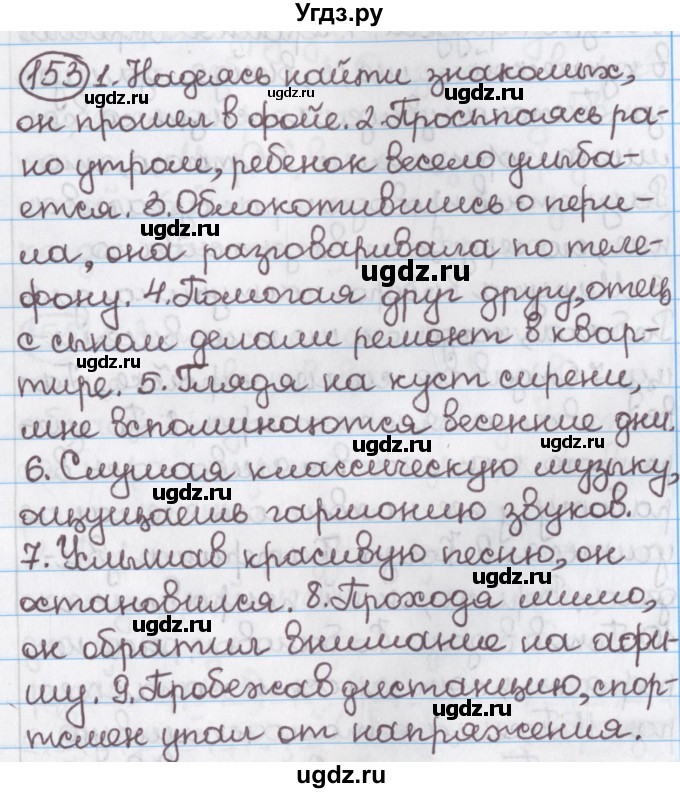 Угдз.ру
153 1. Надеясь найти знакомых,
ugdz.ru ugdz.ru
он прошел в фойе. 2. Просыпаясь ра-
но утром, ребенок весело улыба-
ugdz.ru ugdz.ru
ется. 3. Облокотившись о пери-
ла, она разговаривала по теле-
ugdz.ru
фону. 4. Помогая друг другу, отец
с сыном делали ремонт в квар-
ugdz.ru
тире. 5. Глядя на куст сирени,
мне вспоминаются весенние дни.
ugdz.ru ugdz.ru
6. Слушая классическую музыку,
ugdz.ru
ощущаешь гармонию звуков.
7. Услышав красивую песню, он
ugdz.ru
остановился. 8. Проходя мимо,
ugdz.ru
он обратил внимание на афи-
шу. 9. Пробежав дистанцию, спор-
ugdz.ru
тсмен упал от напряжения.
ugdz.ru